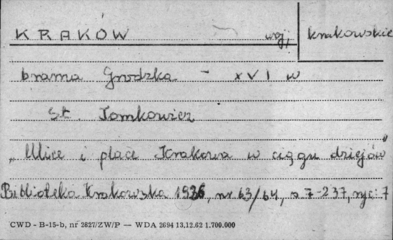 KRAKÓW woj. krakowskie
brama Grodzka - XVI w
St. Tomkowicz
„Ulice i place Krakowa w ciągu dziejów"
Biblioteka Krakowska 1926, nr 63/64, s 7-237, ryc: 7
CWD - B-15-b, nr 2627/ZW/P — WDA 2694 13,12.62 1.700.000